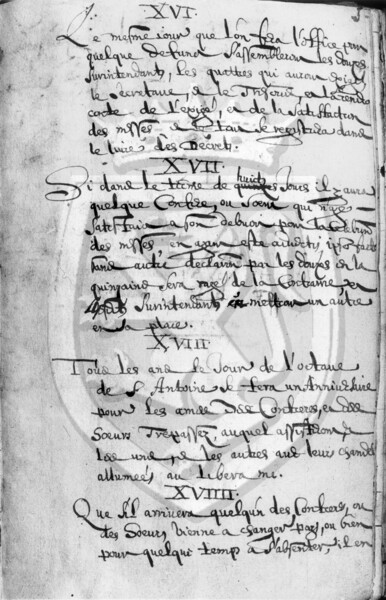 XVI.
Le mesme iour que l'on fera l'office pour
quelque defunct s'assembleront les douze
surintendants, les quattres qui auron
le Secretaire, e le Tresorie, e la rendra
conte de l'exigé, e de la satisfaction
des messes e le tout se registrera dans
le livre des Decrets.
XVII.
Si dans le terme de huict iours il y aura
quelque Confrere, ou Soeur qui n'aye
satisfaict a son debuoir pour la celebra
des messes en ayan esté aduerti
sans autre declaration par les douze de la
quinzaine sera rayé de la Confrairie e
lesdits Surintendants en mettron un autre
en sa place.
XVIII.
Tous les ans le Jour de l'octave
de S. Antoine se fera un Anniversaire
pour les ames des Confreres, e des
Soeurs Trepassez, auquel assisteron
les uns, e les autres aue leurs chandel
allumées au Libera me.
XVIIII.
Que s'il arrivera quelqun des Confreres, ou
des Soeurs, vienne a changer pays, ou bien
pour quelque temp a s'absenter, il en